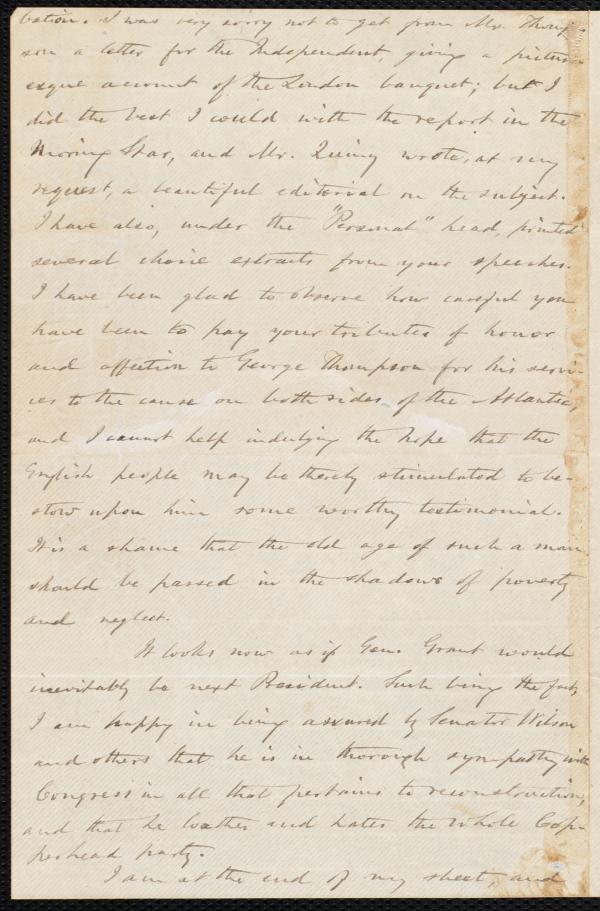 bation. I was very sorry not to get from Mr. Thomp-
son a letter for the Independent, giving a pictur-
esque account of the London banquet; but I
did the best I could with the report in the
Morning Star, and Mr. Quincy wrote, at my
request, a beautiful editorial on the subject.
I have also, under the "Personal" head, printed
several choice extracts from your speeches.
I have been glad to observe how careful you
have been to pay your tributes of honor
and affection to George Thompson for his servi-
ces to the cause on both sides of the Atlantic,
and I cannot help indulging the hope that the
English people may be thereby stimulated to be-
stow upon him some worthy testimonial.
It is a shame that the old age of such a man
should be passed in the shadows of poverty
and neglect.
It looks now as if Gen. Grant would
inevitably be next President. Such being the fact,
I am happy in being assured by Senator Wilson
and others that he is in thorough sympathy with
Congress in all that pertains to reconstruction,
and that he loathes and hates the whole Cop-
perhead party.
I am at the end of my sheet, and